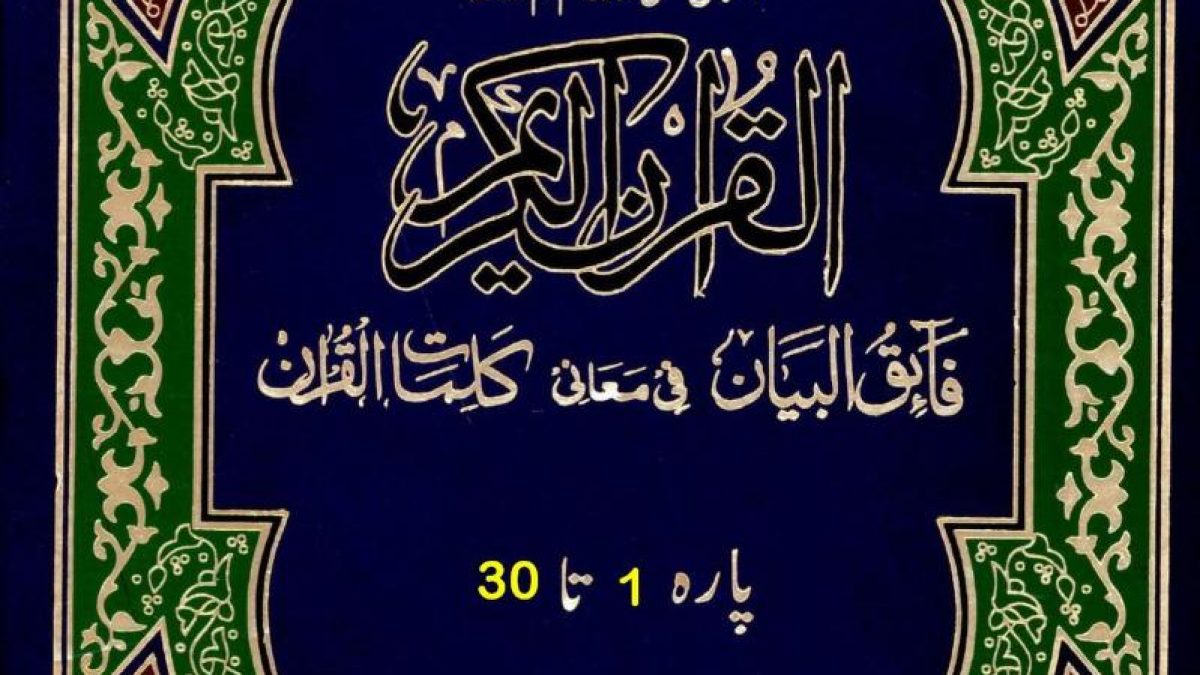 القرآن الكريم
فَآئِقُ البَيَان فِي مَعَانِى كَلِمَاتِ القُرْاٰن
پاره 1 تا 30